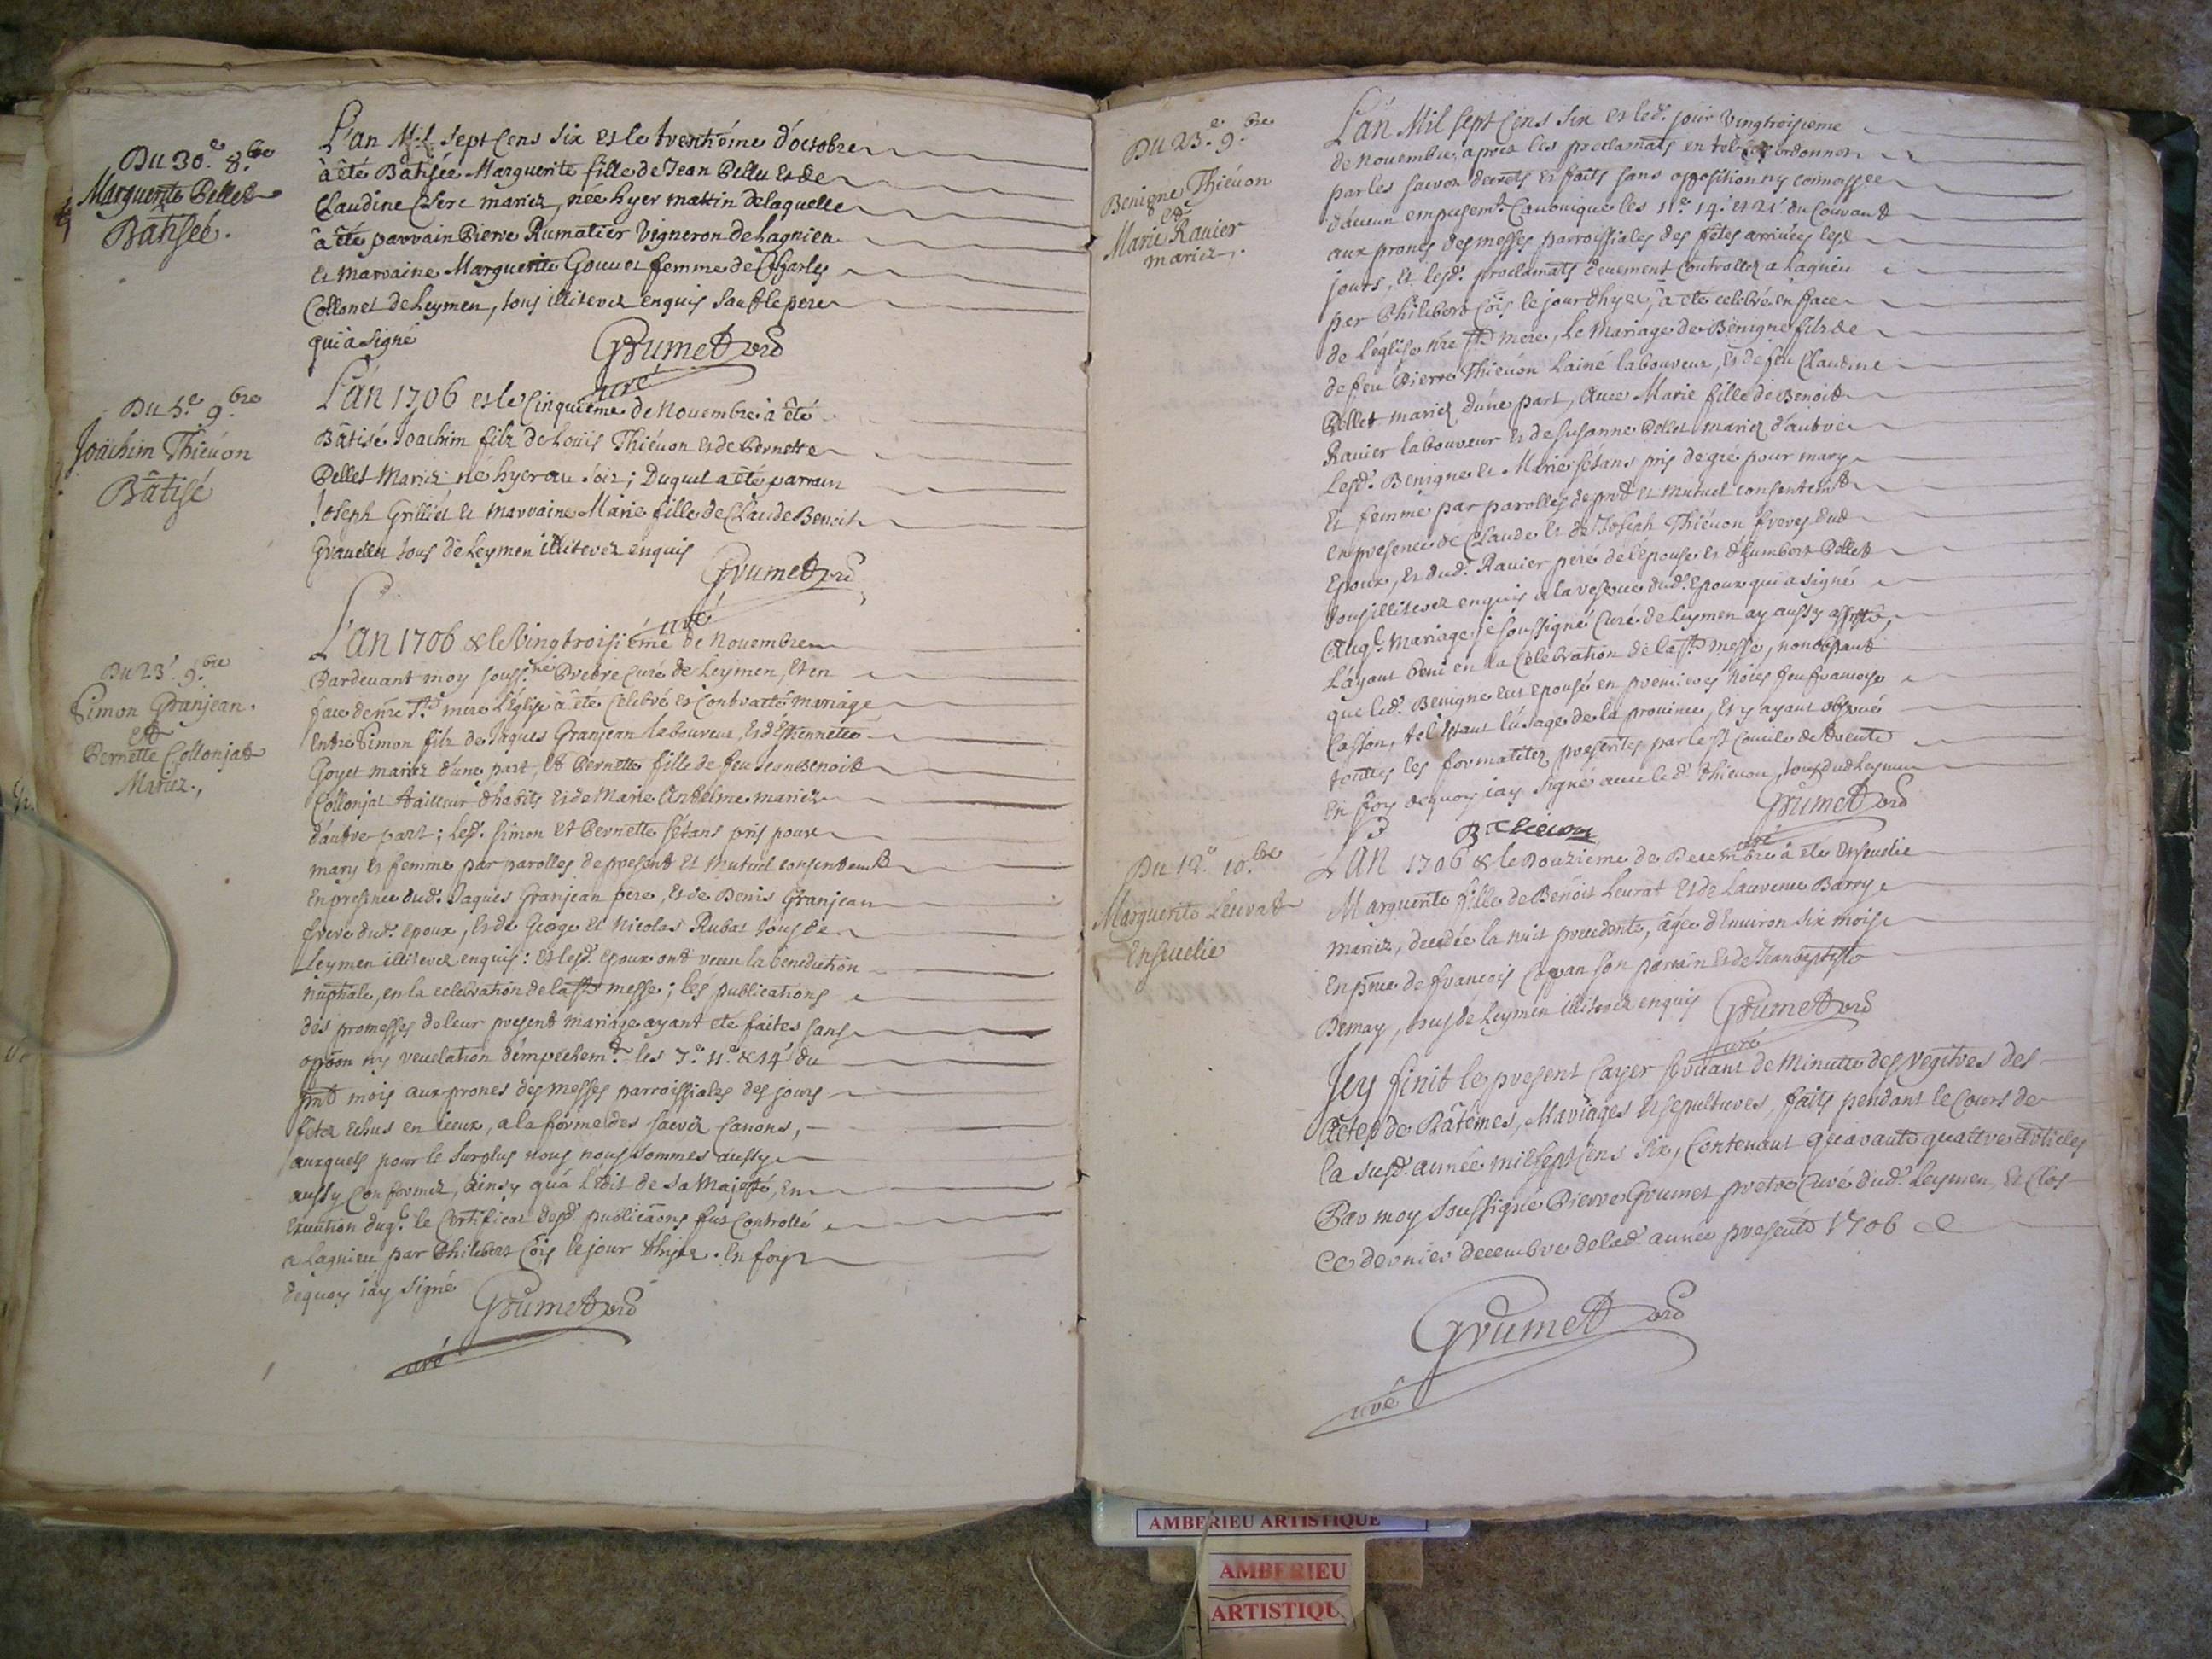 Du 30.e 8.bre
Marguerite Pellet
Bâtisée.
L'an Mil sept Cens six et le trentiéme d'octobre
à été Bâtisée Marguerite fille de Jean Pellet et de
Claudine Clere mariez, née hyer mattin de laquelle
à été parrain Pierre Rumatier Vigneron de Lagnieu
et marraine Marguerite Gouuet femme de Charles
Collonet de Leymen, tous illiterez enquis sauf le pere
qui à signé
Grumet
curé
Du 5.e 9.bre
Joâchim Thiéuon
Bâtisé
L'an 1706 et le Cinquiéme de Nouembre à été
Bâtisé Joachim filz de Loüis Thiéuon et de Pernette
Pellet Mariez, né hyer au soir; Duquel a été parrain
Joseph Grilliet et marraine Marie fille de Claude Benoit
tous de Leymen illiterez enquis
Grumet
curé
Du 23.e 9.bre
Simon Granjean.
et
Pernette Collonjat
Mariez.
L'an 1706 & le Vingtroisiéme de Nouembre
Pardeuant moy souss.né Prebtre Curé de Leymen, et en
face de nre Ste mere L'Eglise à été Celebré et Contratté mariage
Entre Simon filz de Jaques Granjean laboureur, et d'Estiennette
Goyet mariez d'une part, et Pernette fille de feu Jean Benoit
Collonjat tailleur d'habits et de Marie Antelme mariez
d'autre part; Lesd. Simon et Pernette s'étans pris pour
mary et femme par parolles de present et mutuel consentemt
En presence dud. Jaques Granjean pere, et de Denis Granjean
frere dud. epoux, et de George et Nicolas Rubat tous de
Leymen illiterez enquis: et lesd. epoux ont receu la benediction
nuptiale, en la celebration de la ste messe; les publications
des promesses de leur present mariage ayant eté faites sans
oppôon ny reuelation d'empéchem.t les 7.e 11.e & 14.e du
pnt mois aux prones des messes parroissiales des jours
fétez echus en iceux, a la forme des sacrez Canons,
auxquels pour le surplus nous nous sommes aussy
aussy Conformez, ainsy qu'à L'edit de sa Majesté, en
execution duq.l le Certificat desd. publicâons fut Controllé
a Lagnieu par Philibert Côis le jour d'hyer. En foy
dequoy j'ay signé
Grumet
curé
Du 23.e 9.bre
Benigne Thiéuon
et
Marie Rauier
mariez.
L'an Mil sept Cens six et led. jour Vingtroisieme
de Nouembre, aprez les proclamats en tel Cas ordonnez
par les sacrez decrets et faits sans opposition ny connoissce
d'aucun empesem.t Canonique les 11.e 14.e et 21.e du Courant
aux prones des messes parroissiales des fêtes arriuées lesd.
jours, et lesd. proclamats deuement Controllez a Lagnieu
par Philibert Côis le jour d'hyer, à été celebré en face
de L'eglise nre Ste mere, Le Mariage de Benigne filz de
de feu Pierre Thieuon L'ainé laboureur, et de feu Claudine
Pellet mariez d'une part, Auec Marie fille de Benoit
Rauier laboureur et de Susanne Pellet mariez d'autre
Lesd. Benigne et Marie s'étans pris de gré pour mary
et femme par parolles de pnt et mutuel consentemt
En presence de Claude et de Joseph Thiéuon freres dud.
Epoux, et dud. Rauier pere de l'epouse, et d'Humbert Pellet
tous illiterez enquis a la reserue dud. Epoux qui a signé
Auq.l mariage je soussigné Curé de Leymen ay aussy assisté,
L'ayant beni en la Celebration de la ste messe, nonobstant
que led. Benigne eut epousé en premieres noces feu francoise
Casson, tel étant l'usage de la prouince, et y ayant obserué
toutes les formalitez prescrites par le st Concile de Trente
En foy dequoy j'ay signé auec led. Thieuon, tous dud. Leymen
Grumet
curé
B Thieuon
Du 12.e 10.bre
Marguerite Leurat
Enseuelie
L'an 1706 & le Douzieme de Decembre à été Enseuelie
Marguerite fille de Benoit Leurat et de Laurence Barry
mariez, decedée la nuit precedente, âgée d'Enuiron six mois
En pnce de francois Cassan son parrain et de Jean baptiste
Demay, tous de Leymen illiterez enquis
Grumet
curé
Icy finit le present Cayer seruant de Minutte des regitres des
Actes de Bâtêmes, Mariages et sepultures, faits pendant le Cours de
la susd. année mil sept Cens six, Contenant quarante quattre Articles
Par moy soussigné Pierre Grumet pretre Curé dud. Leymen, et Clos
Ce dernier decembre de lad. année presente 1706
Grumet
curé
AMBERIEU ARTISTIQUE
AMBERIEU
ARTISTIQU